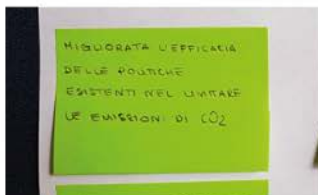 MIGLIORATA L'EFFICACIA
DELLE POLITICHE
ESISTENTI NEL LIMITARE
LE EMISSIONI DI CO2